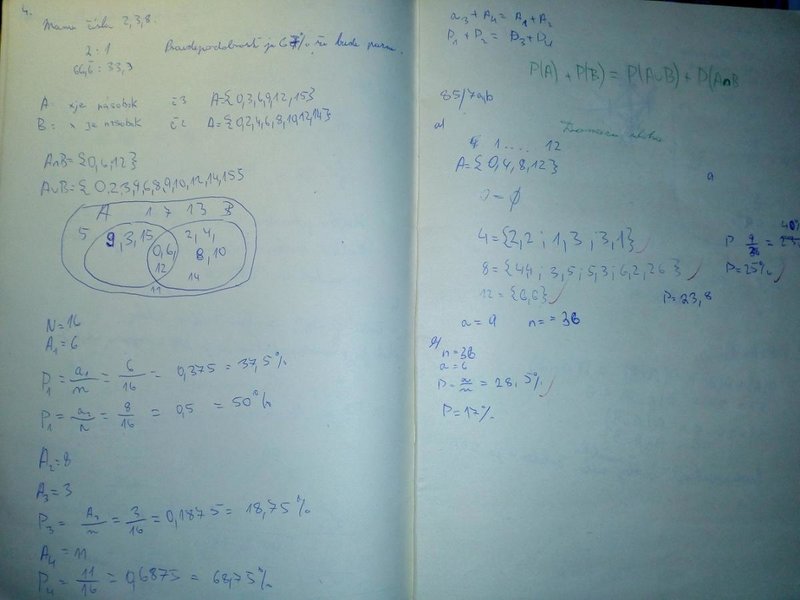 4.
Mame čísla 2,3,8.
2:1
Pravdepodobnosť je 67% že bude
A: x je násobok č3 A={0,3,6,9,12,15}
B: x je násobok č2 A={0,2,4,6,8,10,12,14}
A∩B={0,6,12}
A∪B={0,2,3,4,6,8,9,10,12,14,15}
A 1 7 13 B
5 9,3,15 0,6,12 2,4,8,10 14
11
N=16
A₁=6
P₁=a₁/n=6/16=0,375=37,5%
P₁=a₂/n=8/16=0,5=50%
A₂=8
A₃=3
P₃=A₃/n=3/16=0,1875=18,75%
A₄=11
P₄=11/16=0,6875=68,75%
a₃+A₄=A₁+A₂
P₁+P₂=P₃+P₄
P(A)+P(B)=P(A∪B)+P(A∩B
85/7a,b
a)
1....12
A={0,4,8,12}
0=∅
4={2,2;1,3;3,1}
P 9/36=
8={4,4;3,5;5,3;6,2,26}
P=25%
12={6,6}
P=23,8
a=9 n=36
n=36
a=6
P=a/n=28,5%
P=17%